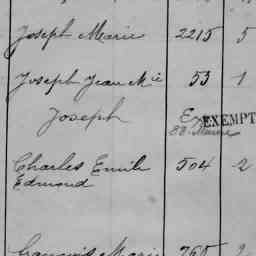 Joseph Marie 2215 5
Joseph Jean Mie 53 1
Joseph EXEMPT
Charles Emile 504 2
Edmond
Marie 765 2